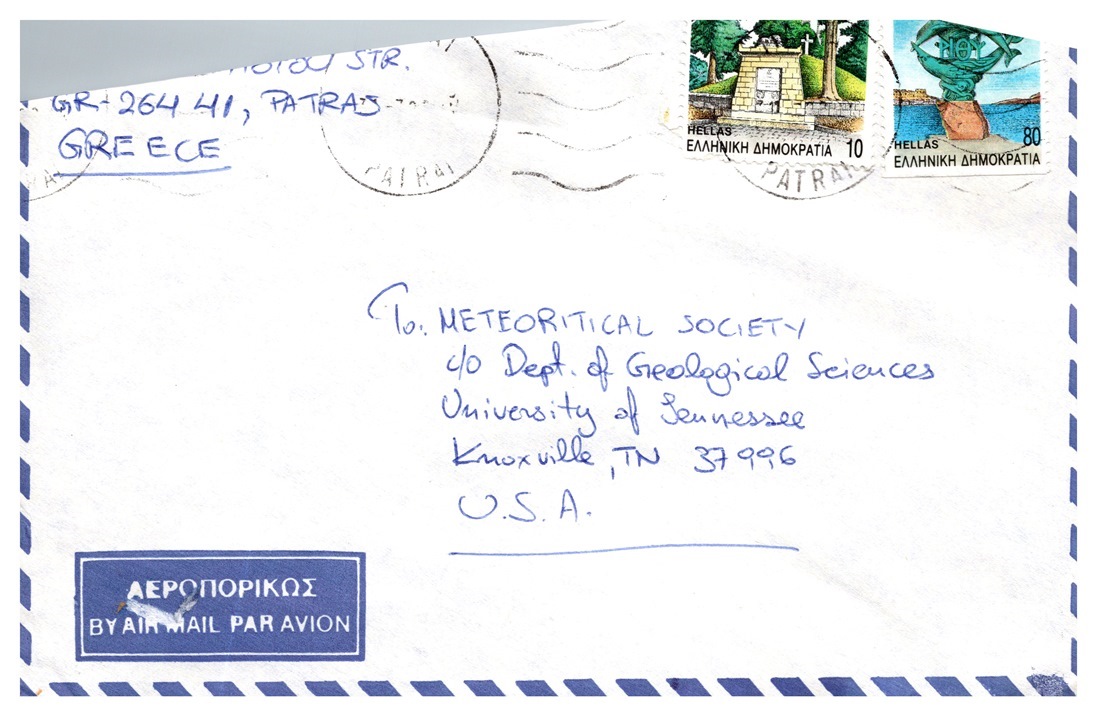 STR.
GR-264 41, PATRAS
GREECE
PATRAI
HELLAS
ΕΛΛΗΝΙΚΗ ΔΗΜΟΚΡΑΤΙΑ 10
80
HELLAS
ΕΛΛΗΝΙΚΗ ΔΗΜΟΚΡΑΤΙΑ
PATRAI
To: METEORITICAL SOCIETY
c/o Dept. of Geological Sciences
University of Tennessee
Knoxville, TN 37996
U.S.A.
ΑΕΡΟΠΟΡΙΚΩΣ
BY AIR MAIL PAR AVION